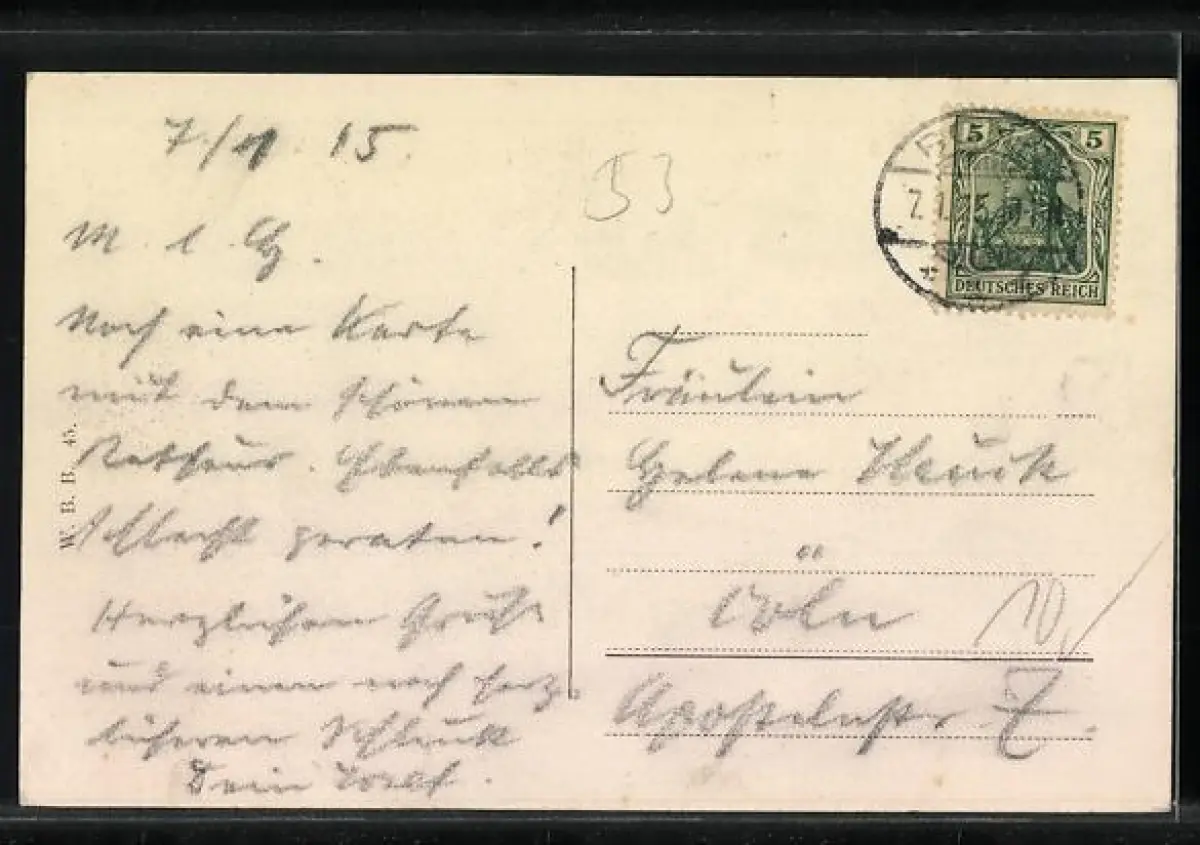 7/1 15.
M. l. G.
Noch eine Karte
mit dem schönen
Rathaus. Ebenfalls
schlecht geraten!
Herzlichen Gruß
und einen noch herz-
licheren Schluck
Dein
W. B. B. 45.
53
5 5
7.1.15
DEUTSCHES REICH
Fräulein
Helene
Cöln
10
Apostelnstr. 7.